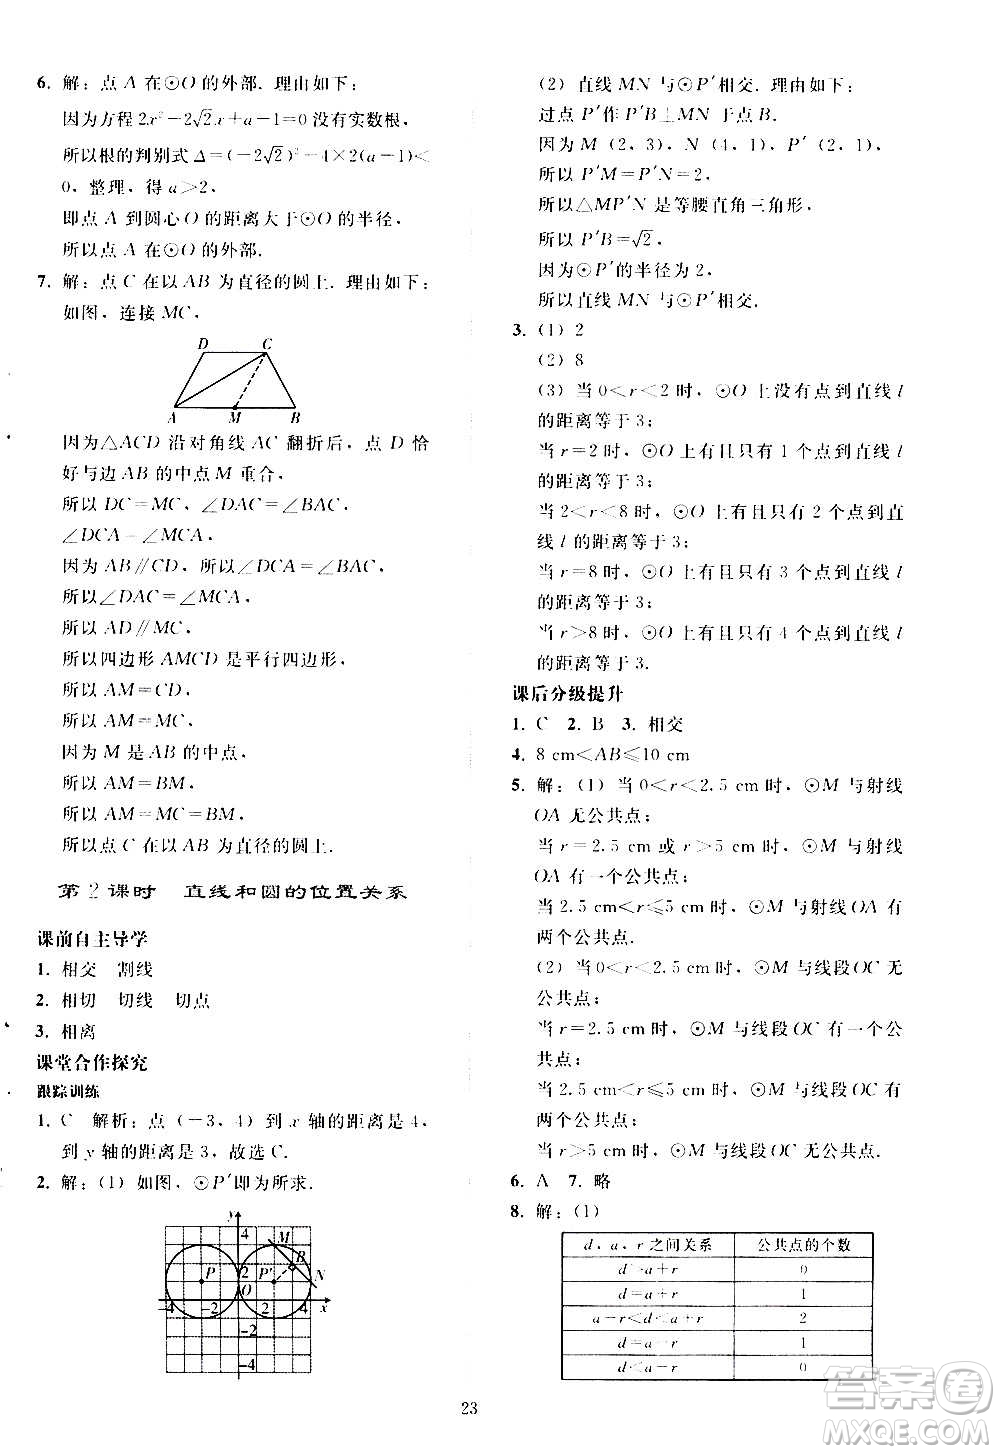 6. 解：点 A 在⊙O 的外部. 理由如下：
因为方程 2x²－2√2x＋a－1＝0 没有实数根，
所以根的判别式 Δ＝(－2√2)²－4×2(a－1)＜
0，整理，得 a＞2，
即点 A 到圆心 O 的距离大于⊙O 的半径，
所以点 A 在⊙O 的外部.
7. 解：点 C 在以 AB 为直径的圆上. 理由如下：
如图，连接 MC，
D C
A M B
因为△ACD 沿对角线 AC 翻折后，点 D 恰
好与边 AB 的中点 M 重合，
所以 DC＝MC，∠DAC＝∠BAC，
∠DCA＝∠MCA，
因为 AB∥CD，所以∠DCA＝∠BAC，
所以∠DAC＝∠MCA，
所以 AD∥MC，
所以四边形 AMCD 是平行四边形，
所以 AM＝CD，
所以 AM＝MC，
因为 M 是 AB 的中点，
所以 AM＝BM，
所以 AM＝MC＝BM，
所以点 C 在以 AB 为直径的圆上.
第2课时 直线和圆的位置关系
课前自主导学
1. 相交 割线
2. 相切 切线 切点
3. 相离
课堂合作探究
跟踪训练
1. C 解析：点（－3，4）到 x 轴的距离是 4，
到 y 轴的距离是 3，故选 C.
2. 解：（1）如图，⊙P′即为所求.
y
4 M
B
P 2 P′ N
O
-4 -2 2 4 x
-2
-4
（2）直线 MN 与⊙P′相交. 理由如下：
过点 P′作 P′B⊥MN 于点 B.
因为 M（2，3），N（4，1），P′（2，1），
所以 P′M＝P′N＝2，
所以△MP′N 是等腰直角三角形，
所以 P′B＝√2，
因为⊙P′的半径为 2，
所以直线 MN 与⊙P′相交.
3.（1）2
（2）8
（3）当 0＜r＜2 时，⊙O 上没有点到直线 l
的距离等于 3；
当 r＝2 时，⊙O 上有且只有 1 个点到直线
l 的距离等于 3；
当 2＜r＜8 时，⊙O 上有且只有 2 个点到直
线 l 的距离等于 3；
当 r＝8 时，⊙O 上有且只有 3 个点到直线 l
的距离等于 3；
当 r＞8 时，⊙O 上有且只有 4 个点到直线 l
的距离等于 3.
课后分级提升
1. C 2. B 3. 相交
4. 8 cm＜AB≤10 cm
5. 解：（1）当 0＜r＜2.5 cm 时，⊙M 与射线
OA 无公共点；
当 r＝2.5 cm 或 r＞5 cm 时，⊙M 与射线
OA 有一个公共点；
当 2.5 cm＜r≤5 cm 时，⊙M 与射线 OA 有
两个公共点.
（2）当 0＜r＜2.5 cm 时，⊙M 与线段 OC 无
公共点；
当 r＝2.5 cm 时，⊙M 与线段 OC 有一个公
共点；
当 2.5 cm＜r≤5 cm 时，⊙M 与线段 OC 有
两个公共点；
当 r＞5 cm 时，⊙M 与线段 OC 无公共点.
6. A 7. 略
8. 解：（1）
d、a、r 之间关系 公共点的个数
d＞a＋r 0
d＝a＋r 1
a－r＜d＜a＋r 2
d＝a－r 1
d＜a－r 0
23
答案圈
MXQE.COM